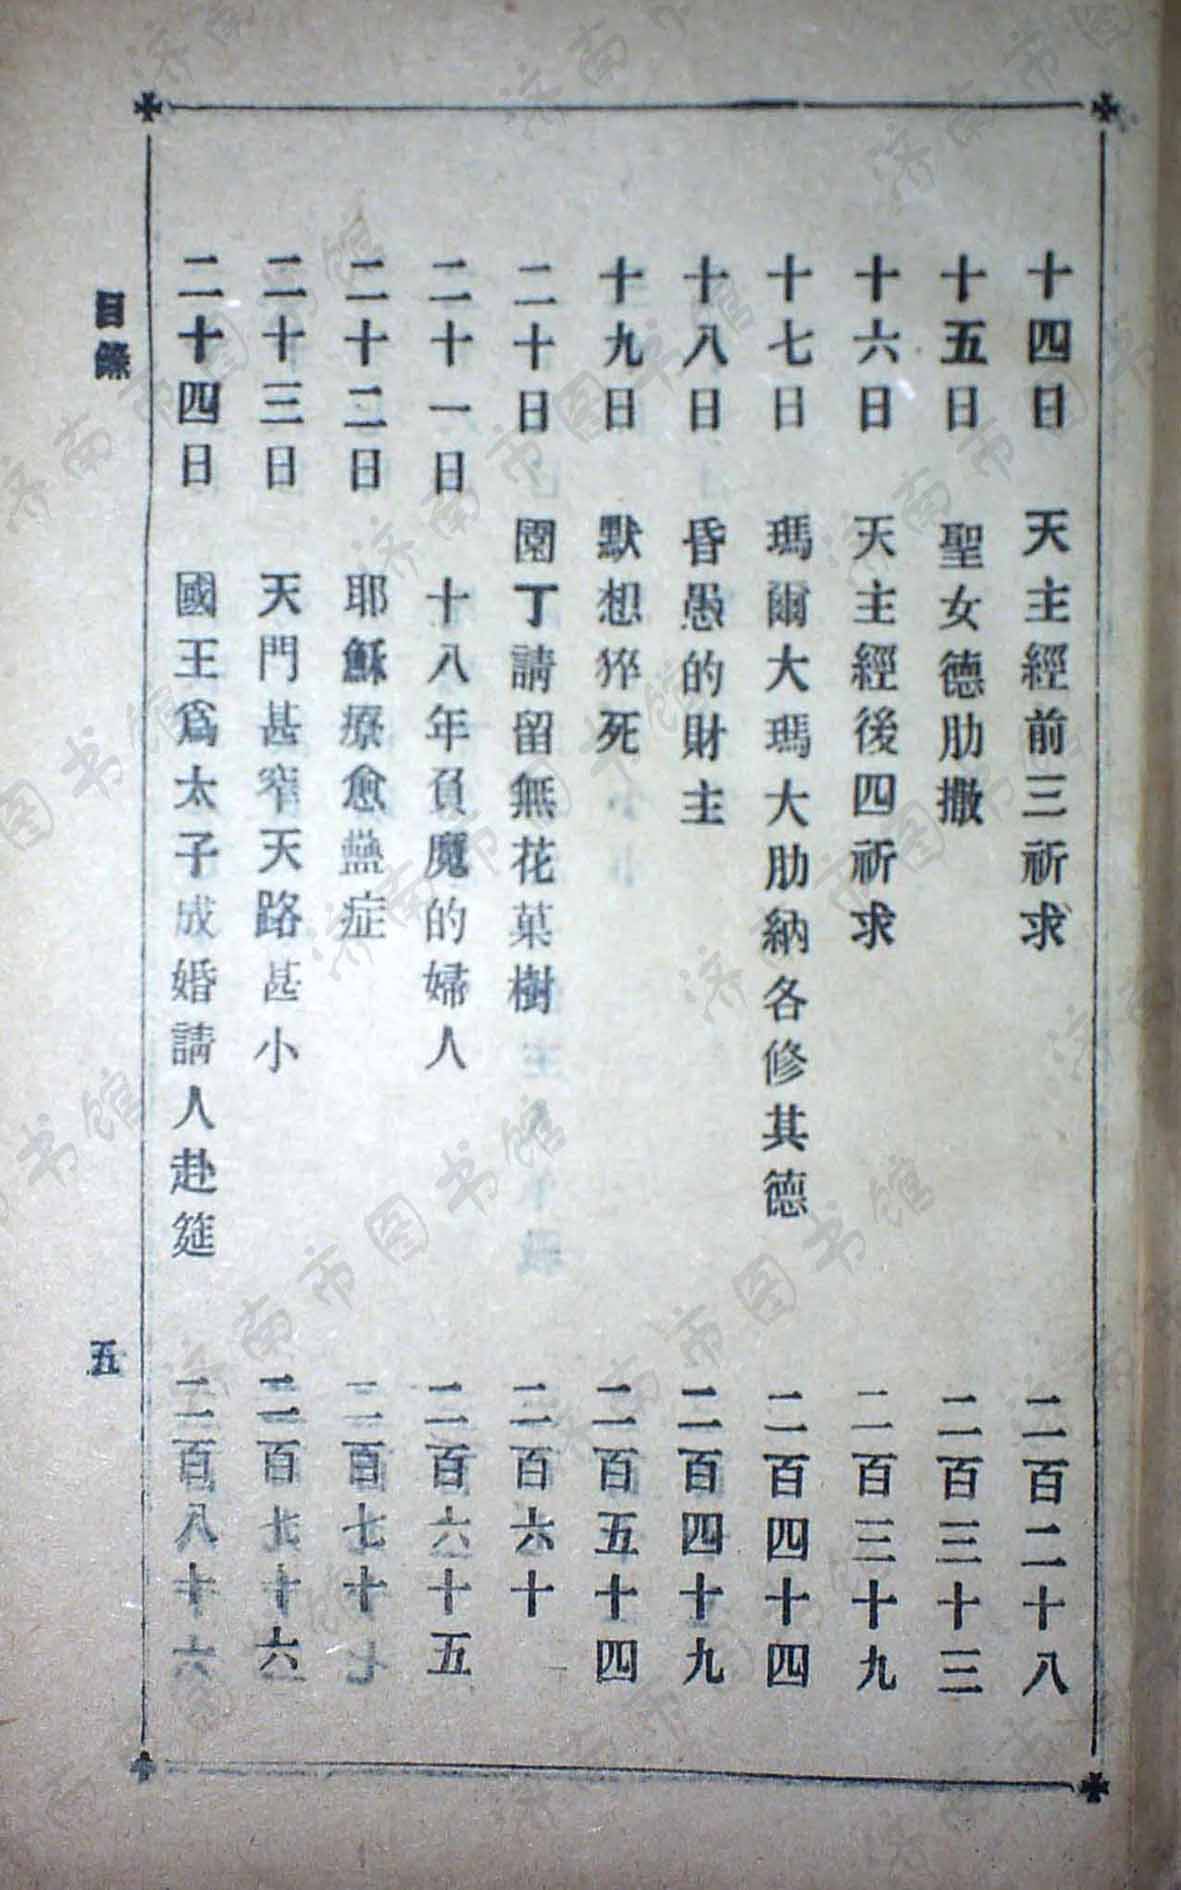 十四日 天主經前三祈求 二百二十八
十五日 聖女德肋撒 二百三十三
十六日 天主經後四祈求 二百三十九
十七日 瑪爾大瑪大肋納各修其德 二百四十四
十八日 昏愚的財主 二百四十九
十九日 默想猝死 二百五十四
二十日 園丁請留無花菓樹 二百六十
二十一日 十八年負魔的婦人 二百六十五
二十二日 耶穌療愈蠱症 二百七十七
二十三日 天門甚窄天路甚小 二百七十六
二十四日 國王爲太子成婚請人赴筵 二百八十六
目錄 五
济南市图书馆